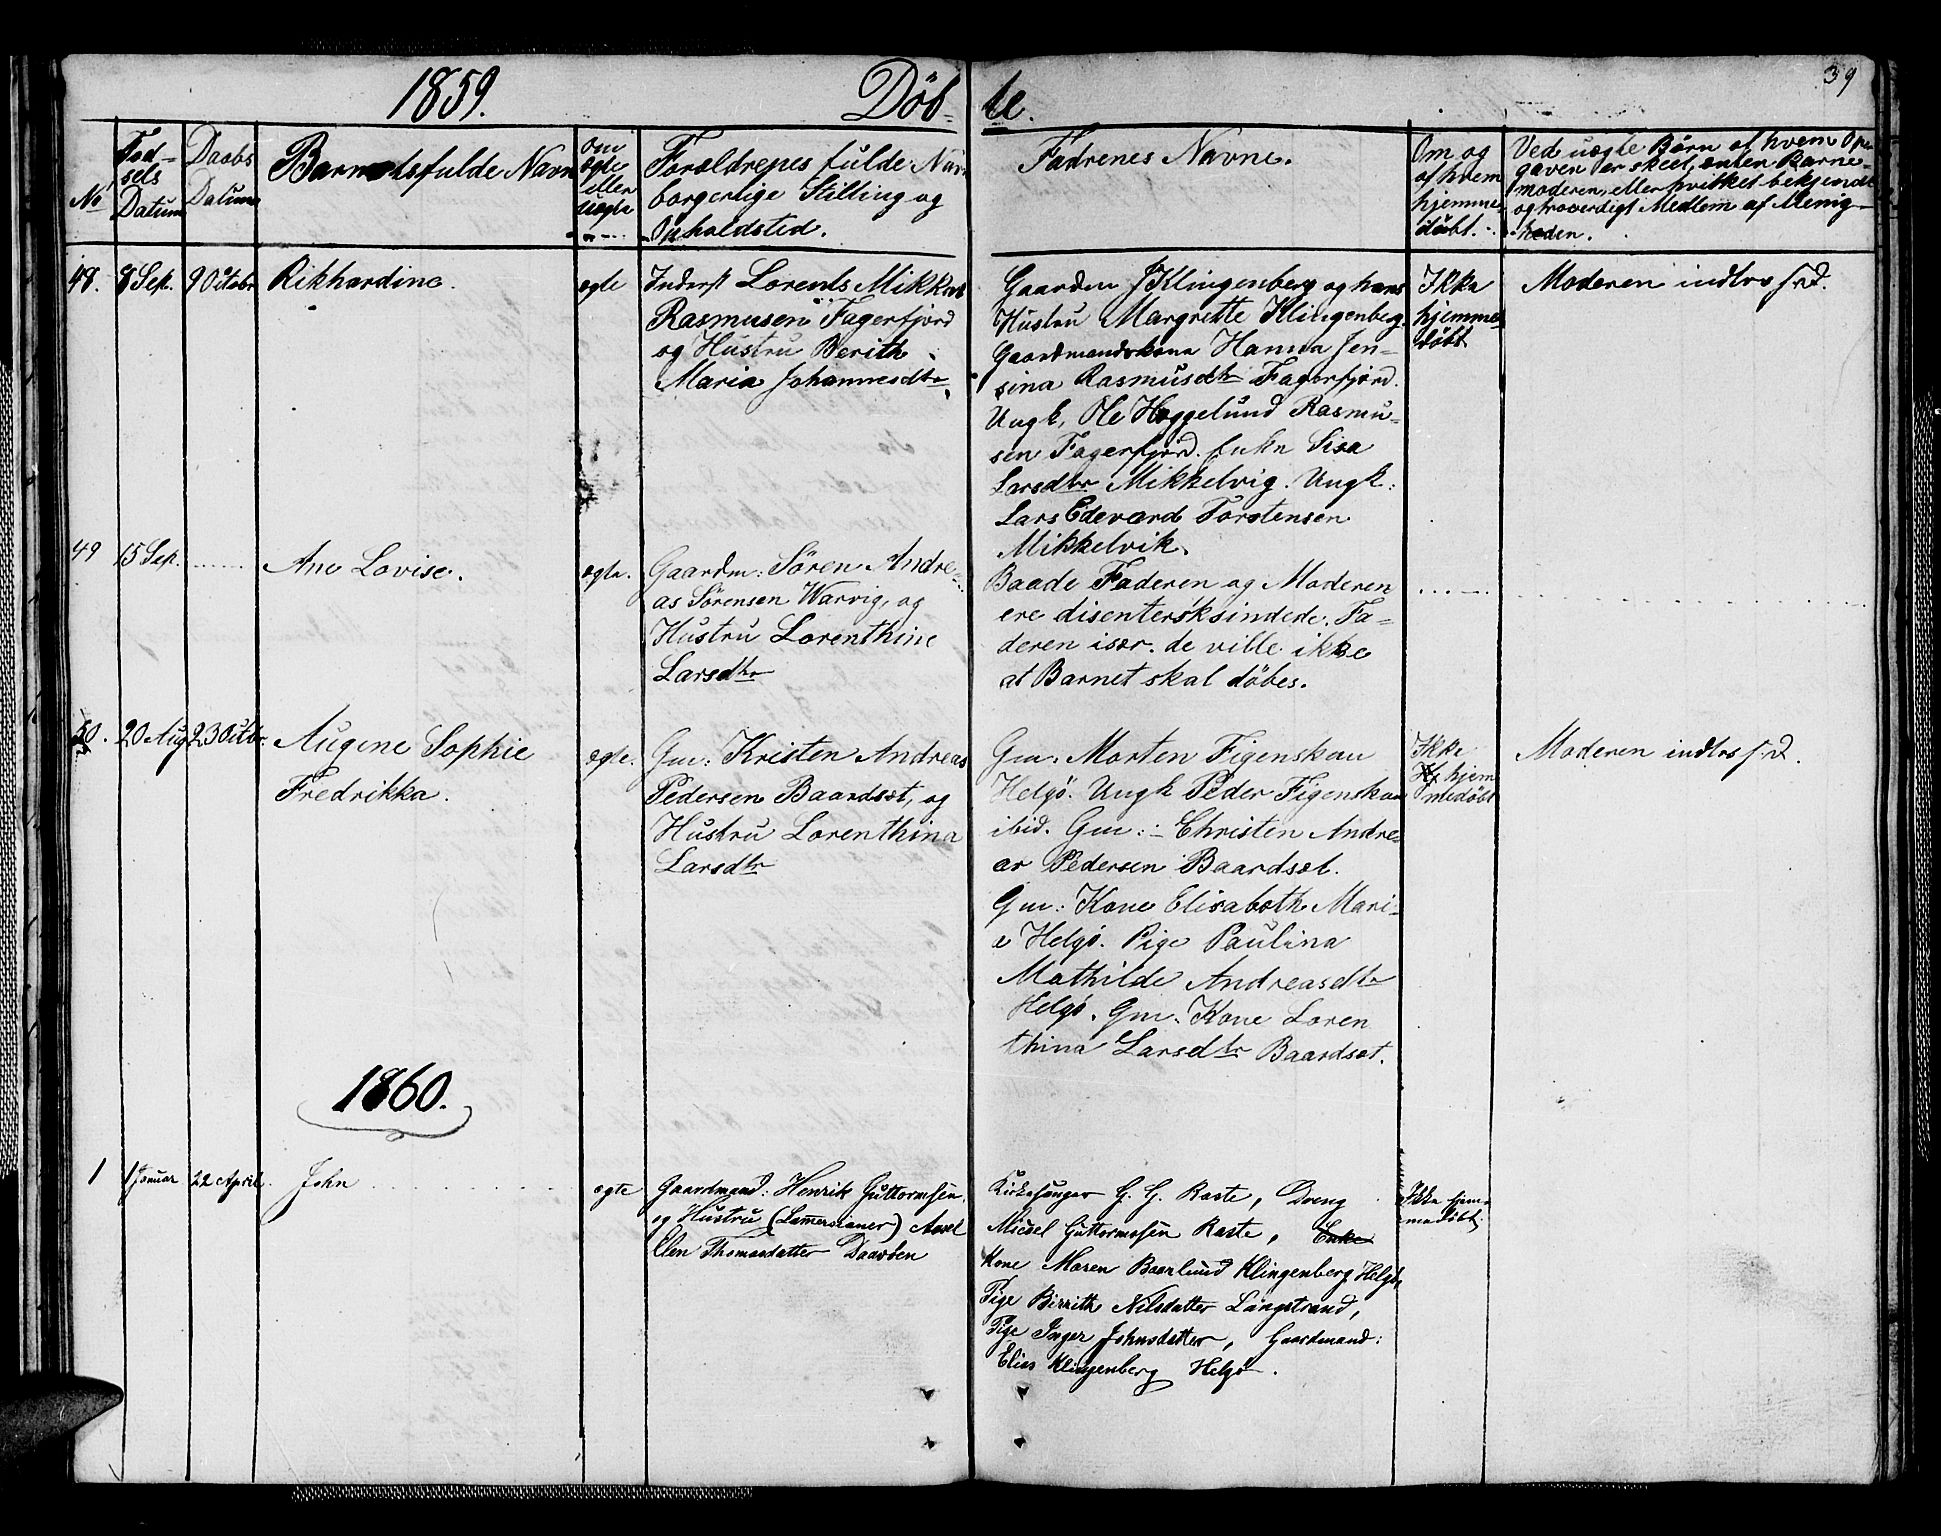 1859. Döb- te. 39
No
Fød-
sels
Datum
Daabs
Datum
Barnetsfulde Navn
Om
ægte
eller
uægte
Foreldrenes fulde Navn
borgerlige Stilling og
Opholdsted.
Fadrenes Navne.
Om og
af hvem
hjemme-
døbt.
Ved uægte Børn af hvem Op
gaven er skeet, enten Barne-
moderen, eller hvilket bekjendt
og troverdigt Medlem af Menig-
heden.
48. 8 Sep. 9 Octobr Rikhardine. ægte
Inderst Lorents Mikkal
Rasmusen Fagerfjord
og Hustru Berith
Maria Johannesdtr
Gaardm J Klingenberg og hans
Hustru Margrethe Klingenberg.
Gaardmandskone Hanna Jen-
sina Rasmusdtr Fagerfjord.
Ungk, Ole Heggelund Rasmu-
sen Fagerfjord. Enke Sisa
Larsdtr Mikkelvig. Ungk.
Lars Edevard Torstensen
Mikkelvik.
Ikke
hjemme
døbt
Moderen indlos
49 15 Sep. Ane Lovise. ægte.
Gaardm: Sören Andre-
as Sørensen Warvig, og
Hustru Lorenthine
Larsdtr
Baade Faderen og Moderen
ere disentersksindede. Fa-
deren især. de ville ikke
at Barnet skal döbes.
50. 20 Aug 23 Octbr. Augene Sophie
Fredrikka.
ægte.
Gm: Kristen Andreas
Pedersen Baardset, og
Hustru Lorenthina
Larsdtr
Gm: Morten Figenskau
Helgö. Ungk Peder Figenskau
ibid. Gm:- Christen Andre-
as Pedersen Baardset.
Gm: Kone Elisabeth Mari-
a Helgö. Pige Paulina
Mathilde Andreasdtr
Helgö. Gm. Kone Loren
thina Larsdtr Baardset.
Ikke
hjem
medöbt
Moderen indlos
1860.
1 1 Januar 22 April. John ægte
Gaardmand: Henrik Guttormsen
og Hustru (Lammersianer) Axel
Elen Thomasdatter
Kirkesanger G. G. Raste, Dreng
Micsel Guttormsen Raste, Enke
Kone Maren Baarlund Klingenberg Helgö,
Pige Birrithe Nilsdatter Langstrand,
Pige Inger Johnsdatter, Gaardmand:
Elias Klingenberg Helgö.
Ikke hjem-
medöbt.